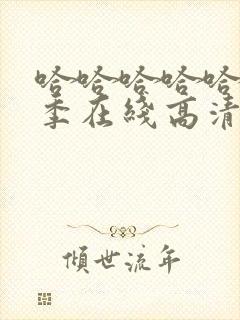 哈哈哈哈哈
季在线高清
倾世流年